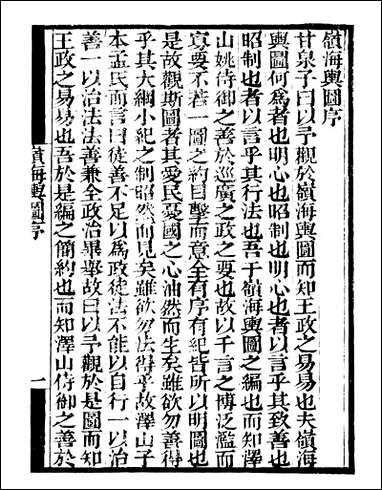 嶺海輿圖序
甘泉子曰以予觀於嶺海輿圖而知王政之易易也夫嶺海
輿圖何為者也明心也昭制也明心也者以言乎其致善也
昭制也者以言乎其行法也吾于嶺海輿圖之編也而知澤
山姚侍御之善於巡廣之政之要也故以千言之博泛濫而
寡要不若一圖之約目擊而意全有序有紀皆所以明圖也
是故觀斯圖者其愛民憂國之心油然而生矣雖欲勿善得
乎其大綱小紀之制昭然而見矣雖欲勿法得乎故澤山子
本孟氏而言曰徒善不足以為政徒法不能以自行一以治
善一以治法法善兼全政治畢舉故曰以予觀於是圖而知
王政之易易也吾於是編之簡約也而知澤山侍御之善於
嶺海輿圖序
一